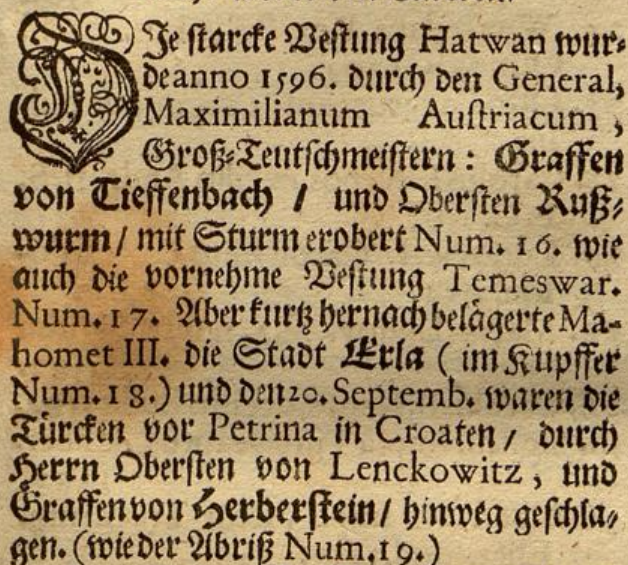 DJe starcke Vestung Hatwan wur-
de anno 1596. durch den General,
Maximilianum Austriacum,
Groß-Teutschmeistern: Graffen
von Tieffenbach / und Obersten Ruß-
wurm / mit Sturm erobert Num. 16. wie
auch die vornehme Vestung Temeswar.
Num. 17. Aber kurtz hernach belägerte Ma-
homet III. die Stadt Erla (im Kupffer
Num. 18.) und den 20. Septemb. waren die
Türcken vor Petrina in Croaten / durch
Herrn Obersten von Lenckowitz, und
Graffen von Herberstein / hinweg geschla-
gen. (wie der Abriß Num. 19.)